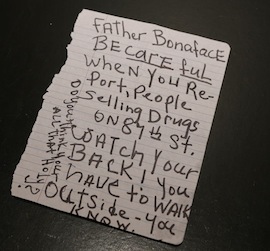 FATHER BONAFACE
BECAREFUL
WHEN YOU RE-
PORT, PEOPLE
Selling DRUGS
ON 84TH ST.
WATCH YOUR
BACK! YOU
HAVE TO WALK
OUTSIDE - YOU
KNOW.
DO YOU THINK YOU'RE
ALL THAT HOLY
?